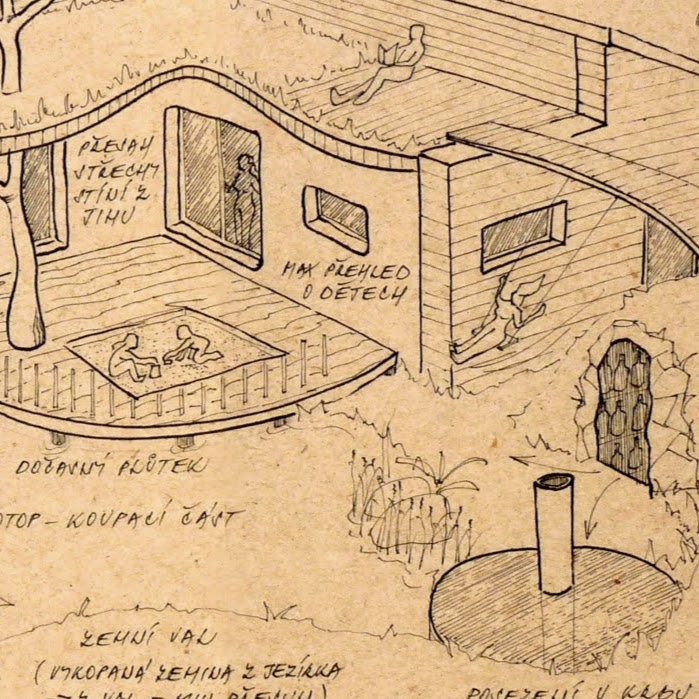 PŘESAH
STŘECHY
STÍNÍ Z
JIHU
MAX PŘEHLED
O DĚTECH
DOČASNÍ PRŮTEK
OTOP – KOUPACÍ ČÁST
ZEMNÍ VAL
(VYKOPANÁ ZEMINA Z JEZÍRKA
VAL – MIN PŘESUN)
POSEZENÍ U KRBU